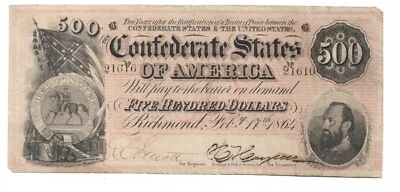 500 Two Years after the Ratification of a Treaty of Peace between the 500
CONFEDERATE STATES & THE UNITED STATES,
The Confederate States
No 21616 No 21616
OF AMERICA
Will pay to the bearer on demand
FIVE HUNDRED DOLLARS
Richmond, Feby 17th 1864
for Register for Treasurer